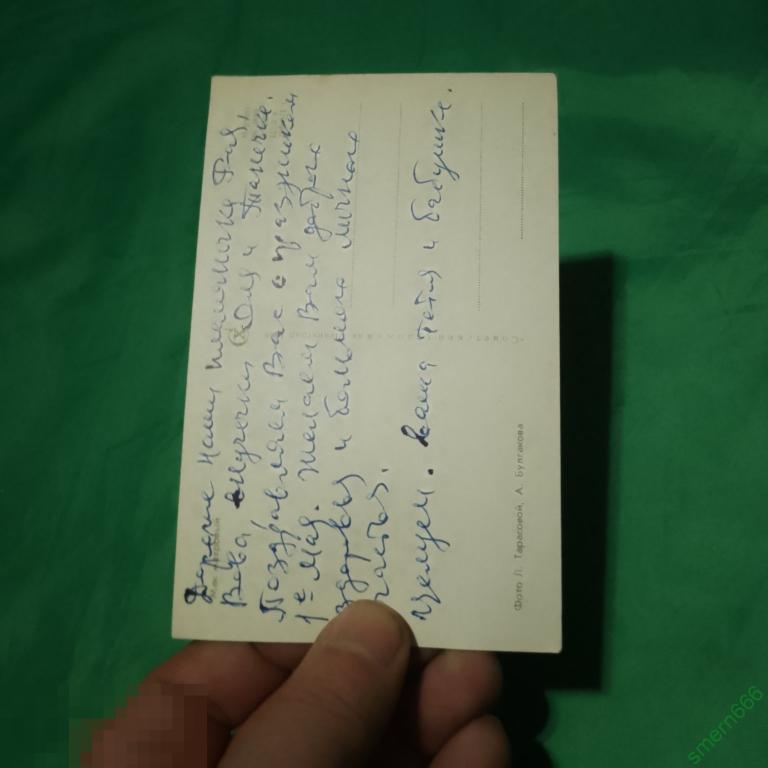 Дорогие Наши племянички Рая,
Вова, внучечки Оля и Танечка.
Поздравляем Вас с праздником
1е Мая. Желаем Вам доброго
здоровья и большого личного
счастья.
Целуем. Ваша тетя и бабушка.
Фото Л. Тарасовой, А. Булгакова
smern666